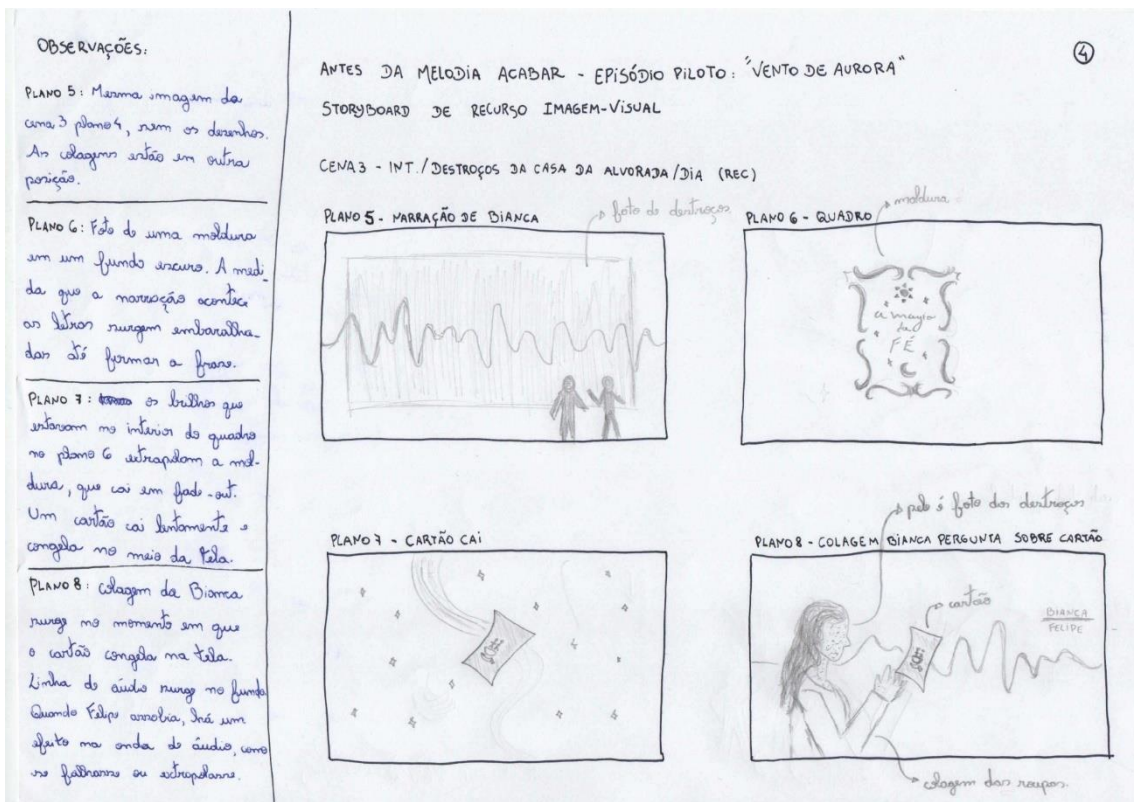 OBSERVAÇÕES:
PLANO 5: Mesma imagem da
cena 3 plano 4, sem os desenhos.
As colagens estão em outra
posição.
PLANO 6: Foto de uma moldura
em um fundo escuro. A medi-
da que a narração acontece
as letras surgem embaralha-
das até formar a frase.
PLANO 7: os brilhos que
estavam no interior do quadro
no plano 6 extrapolam a mol-
dura, que cai em fade-out.
Um cartão cai lentamente e
congela no meio da tela.
PLANO 8: colagem da Bianca
surge no momento em que
o cartão congela na tela.
Linha do áudio surge no fundo
Quando Felipe assobia, há um
efeito na onda do áudio, como
se falhasse ou extrapolasse.
4
ANTES DA MELODIA ACABAR - EPISÓDIO PILOTO: "VENTO DE AURORA"
STORYBOARD DE RECURSO IMAGEM-VISUAL
CENA 3 - INT./DESTROÇOS DA CASA DA ALVORADA/DIA (REC)
PLANO 5 - NARRAÇÃO DE BIANCA
foto do destroços
PLANO 6 - QUADRO
moldura
a magia
da
FÉ
PLANO 7 - CARTÃO CAI
PLANO 8 - COLAGEM BIANCA PERGUNTA SOBRE CARTÃO
pele é foto dos destroços
cartão
BIANCA
FELIPE
colagem das roupas.